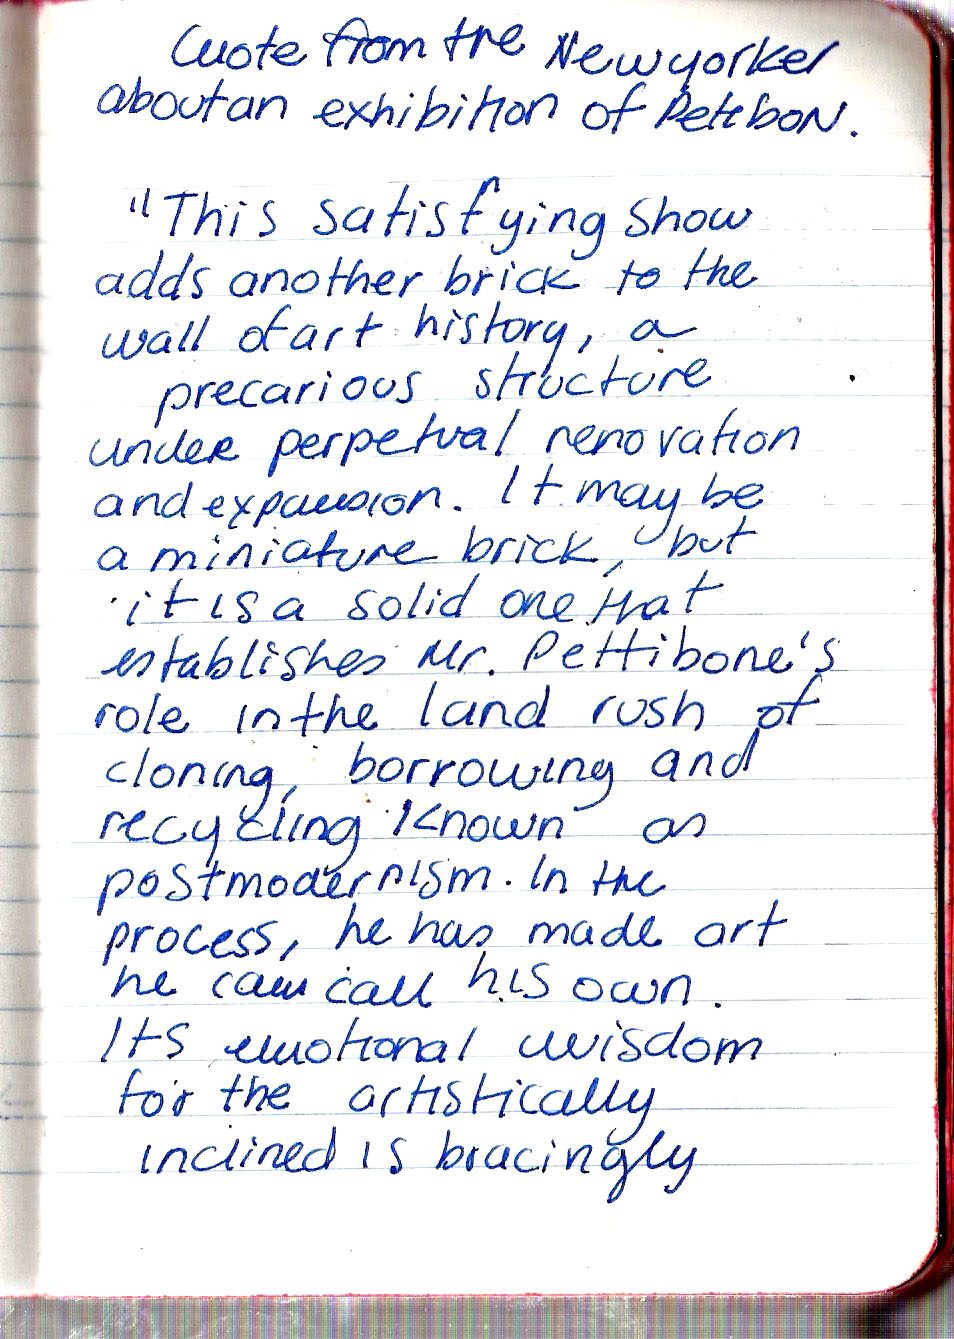 Quote from the Newyorker
about an exhibition of Pettibon.
"This satisfying show
adds another brick to the
wall of art history, a
precarious structure
under perpetual renovation
and expansion. It may be
a miniature brick, but
it is a solid one that
establishes Mr. Pettibone's
role in the land rush of
cloning, borrowing and
recycling known as
postmodernism. In the
process, he has made art
he can call his own.
Its emotional wisdom
for the artistically
inclined is bracingly